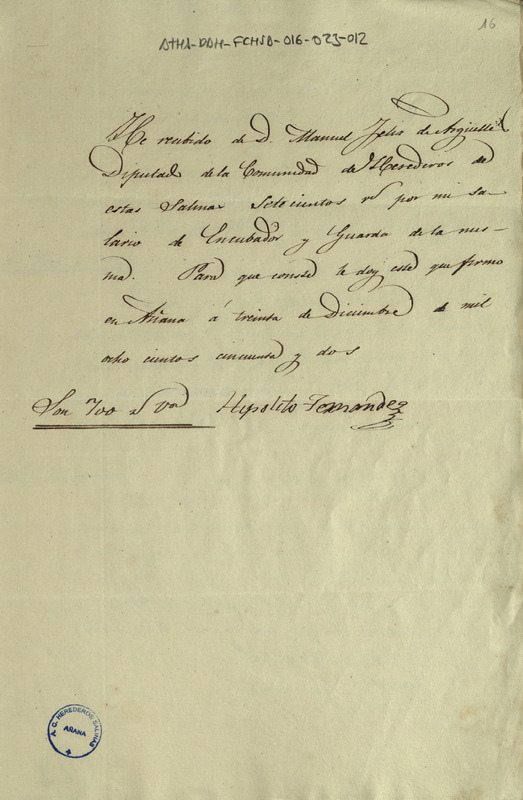 16
ATHA-DAH-FCHSA-016-023-012
He recibido de D. Manuel Felix de Arguelles
Diputad de la Comunidad de Herederos de
estas Salinas Setecientos rs por mi sa-
lario de Encubador y Guarda de la mis-
ma. Para que conste le doy este que firmo
en Añana á treinta de Diciembre de mil
ocho cientos cincuenta y dos
Son 700 rs von Hipolito Fernandez
A. C. HEREDEROS SALINAS
AÑANA